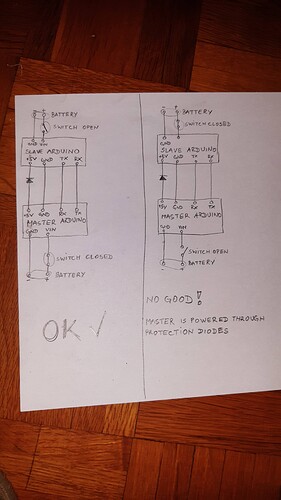 BATTERY
SWITCH OPEN
GND VIN
SLAVE ARDUINO
+5V GND TX RX
+5V GND RX TX
MASTER ARDUINO
GND VIN
SWITCH CLOSED
- + BATTERY
OK ✓
- + BATTERY
SWITCH CLOSED
GND
SLAVE ARDUINO
+5V GND TX RX
+5V GND RX TX
MASTER ARDUINO
GND VIN
SWITCH OPEN
- + BATTERY
NO GOOD!
MASTER IS POWERED THROUGH
PROTECTION DIODES